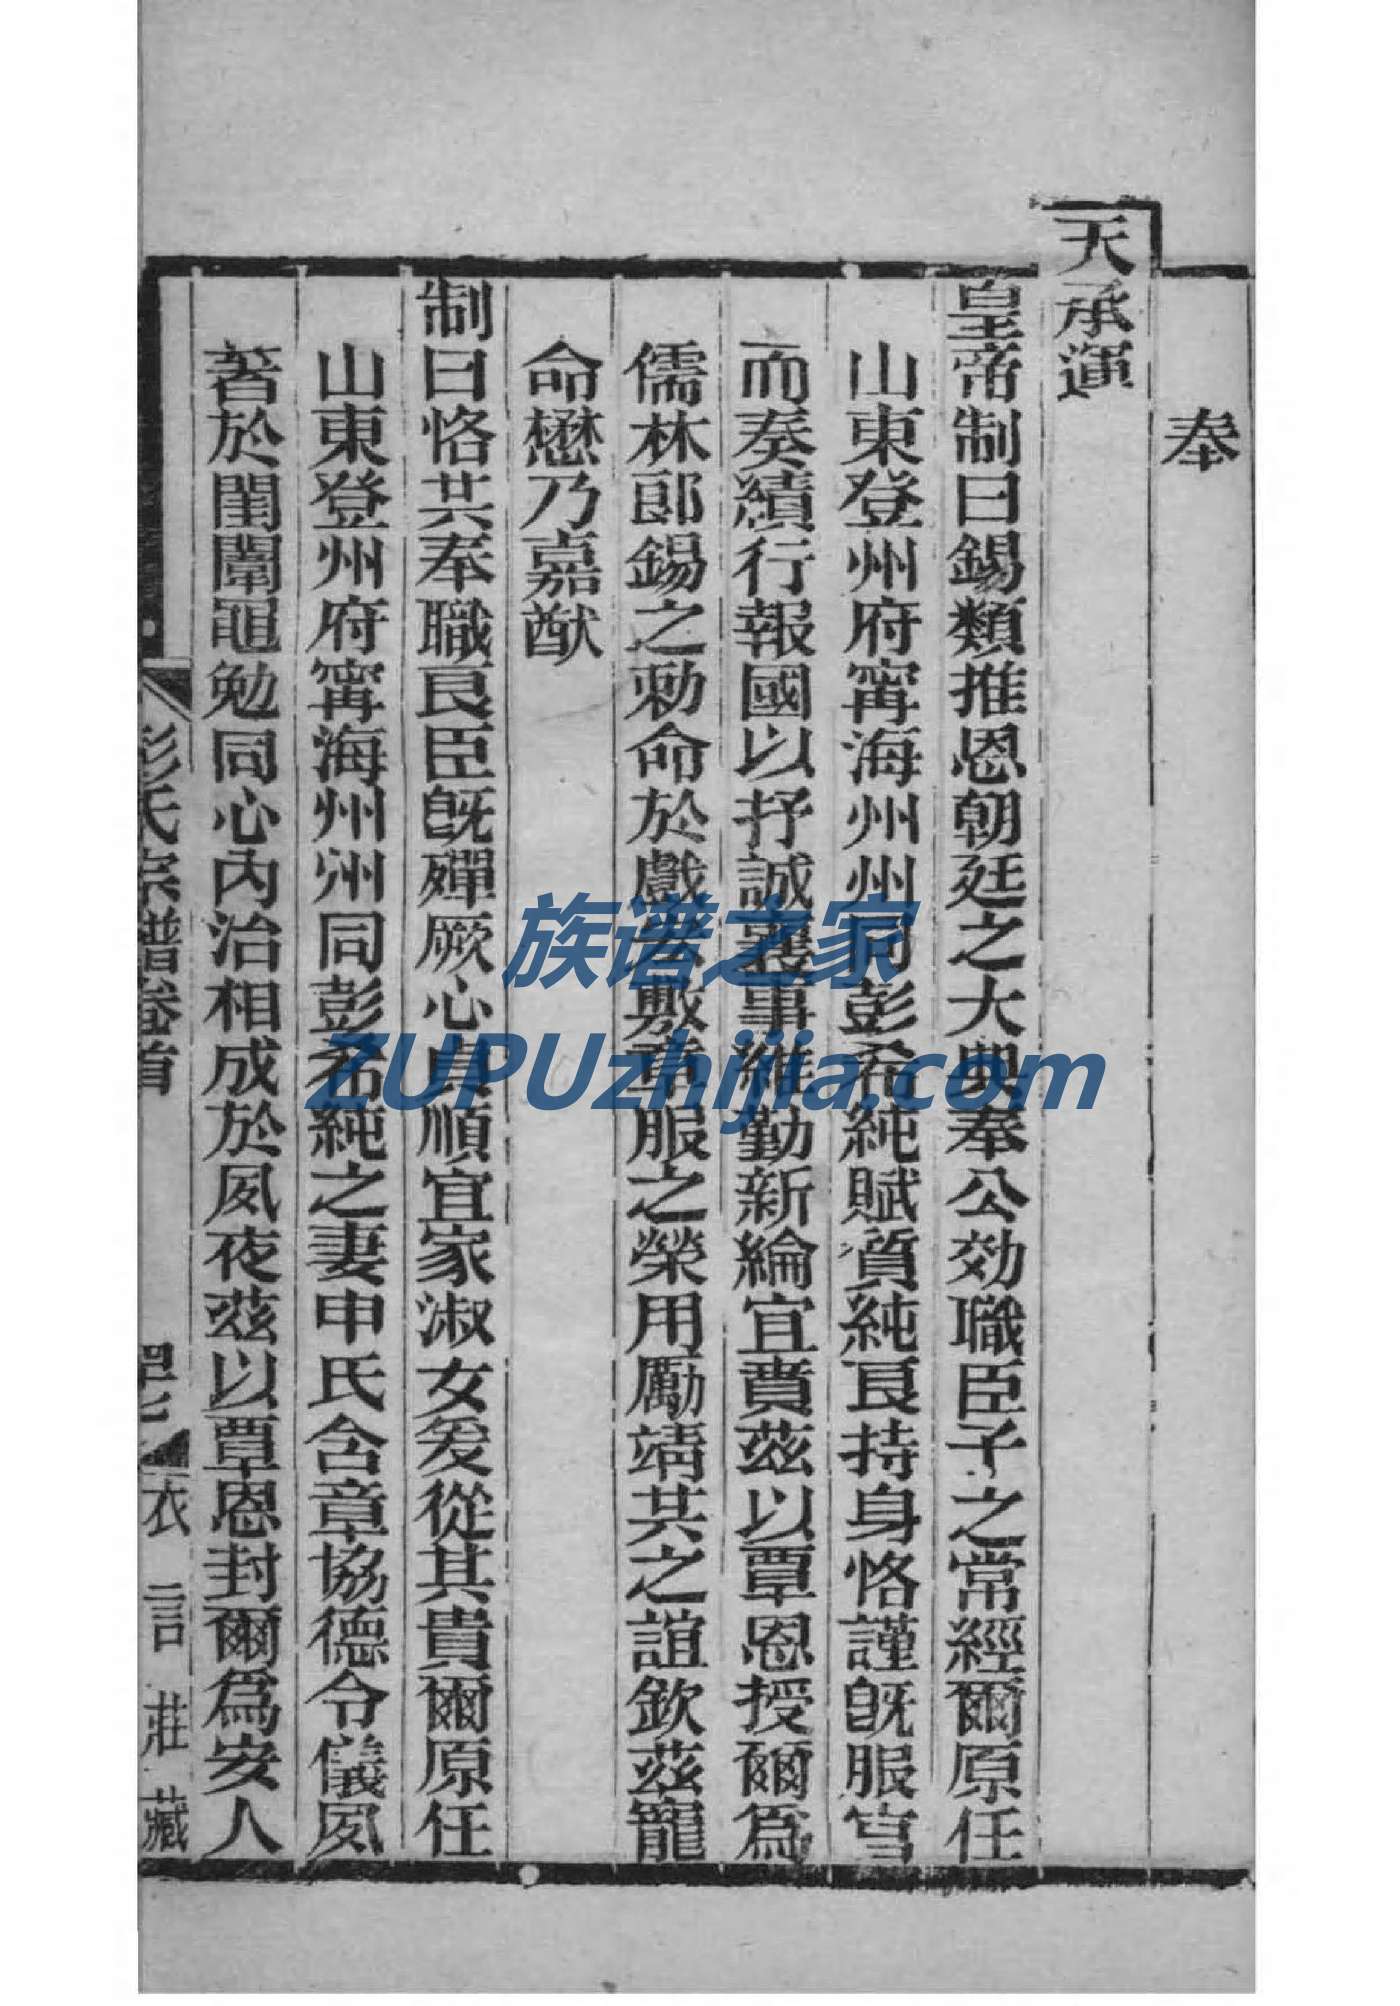 奉
天承運
皇帝制曰錫類推恩朝廷之大典奉公効職臣子之常經爾原任
山東登州府寗海州州同彭希純賦質純良持身恪謹旣服官
而奏績行報國以抒誠襄事維勤新綸宜賁茲以覃恩授爾爲
儒林郎錫之勅命於戲 敷章服之榮用勵靖共之誼欽茲寵
命懋乃嘉猷
制曰恪共奉職良臣旣殫厥心貞順宜家淑女爰從其貴爾原任
山東登州府寗海州州同彭希純之妻申氏含章協德令儀夙
著於閨闈黽勉同心內治相成於夙夜茲以覃恩封爾爲安人
彭氏宗譜卷首
衣言莊藏
族谱之家
ZUPUzhijia.com